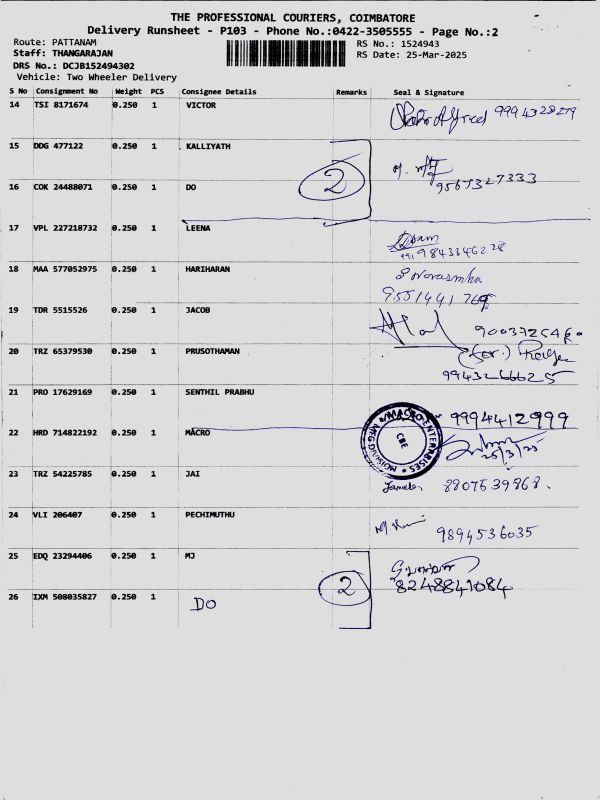 THE PROFESSIONAL COURIERS, COIMBATORE
Delivery Runsheet - P103 - Phone No.:0422-3505555 - Page No.:2
Route: PATTANAM
RS No.: 1524943
Staff: THANGARAJAN
RS Date: 25-Mar-2025
DRS No.: DCJB152494302
Vehicle: Two Wheeler Delivery
S No Consignment No Weight PCS Consignee Details Remarks Seal & Signature
14 TSI 8171674 0.250 1 VICTOR 9994328279
15 DDG 477122 0.250 1 KALLIYATH
2
16 COK 24488071 0.250 1 DO 9567327333
17 VPL 227218732 0.250 1 LEENA
9843346228
18 MAA 577052975 0.250 1 HARIHARAN
9551441769
19 TDR 5515526 0.250 1 JACOB
20 TRZ 65379530 0.250 1 PRUSOTHAMAN
9943266625
21 PRO 17629169 0.250 1 SENTHIL PRABHU
9994412999
22 HRD 714822192 0.250 1 MACRO
MACRO ENTERPRISES
CBE
25/3/25
23 TRZ 54225785 0.250 1 JAI
8807539868.
24 VLI 206407 0.250 1 PECHIMUTHU
9894536035
25 EDQ 23294406 0.250 1 MJ
2
8248841084
26 IXM 508035827 0.250 1 DO